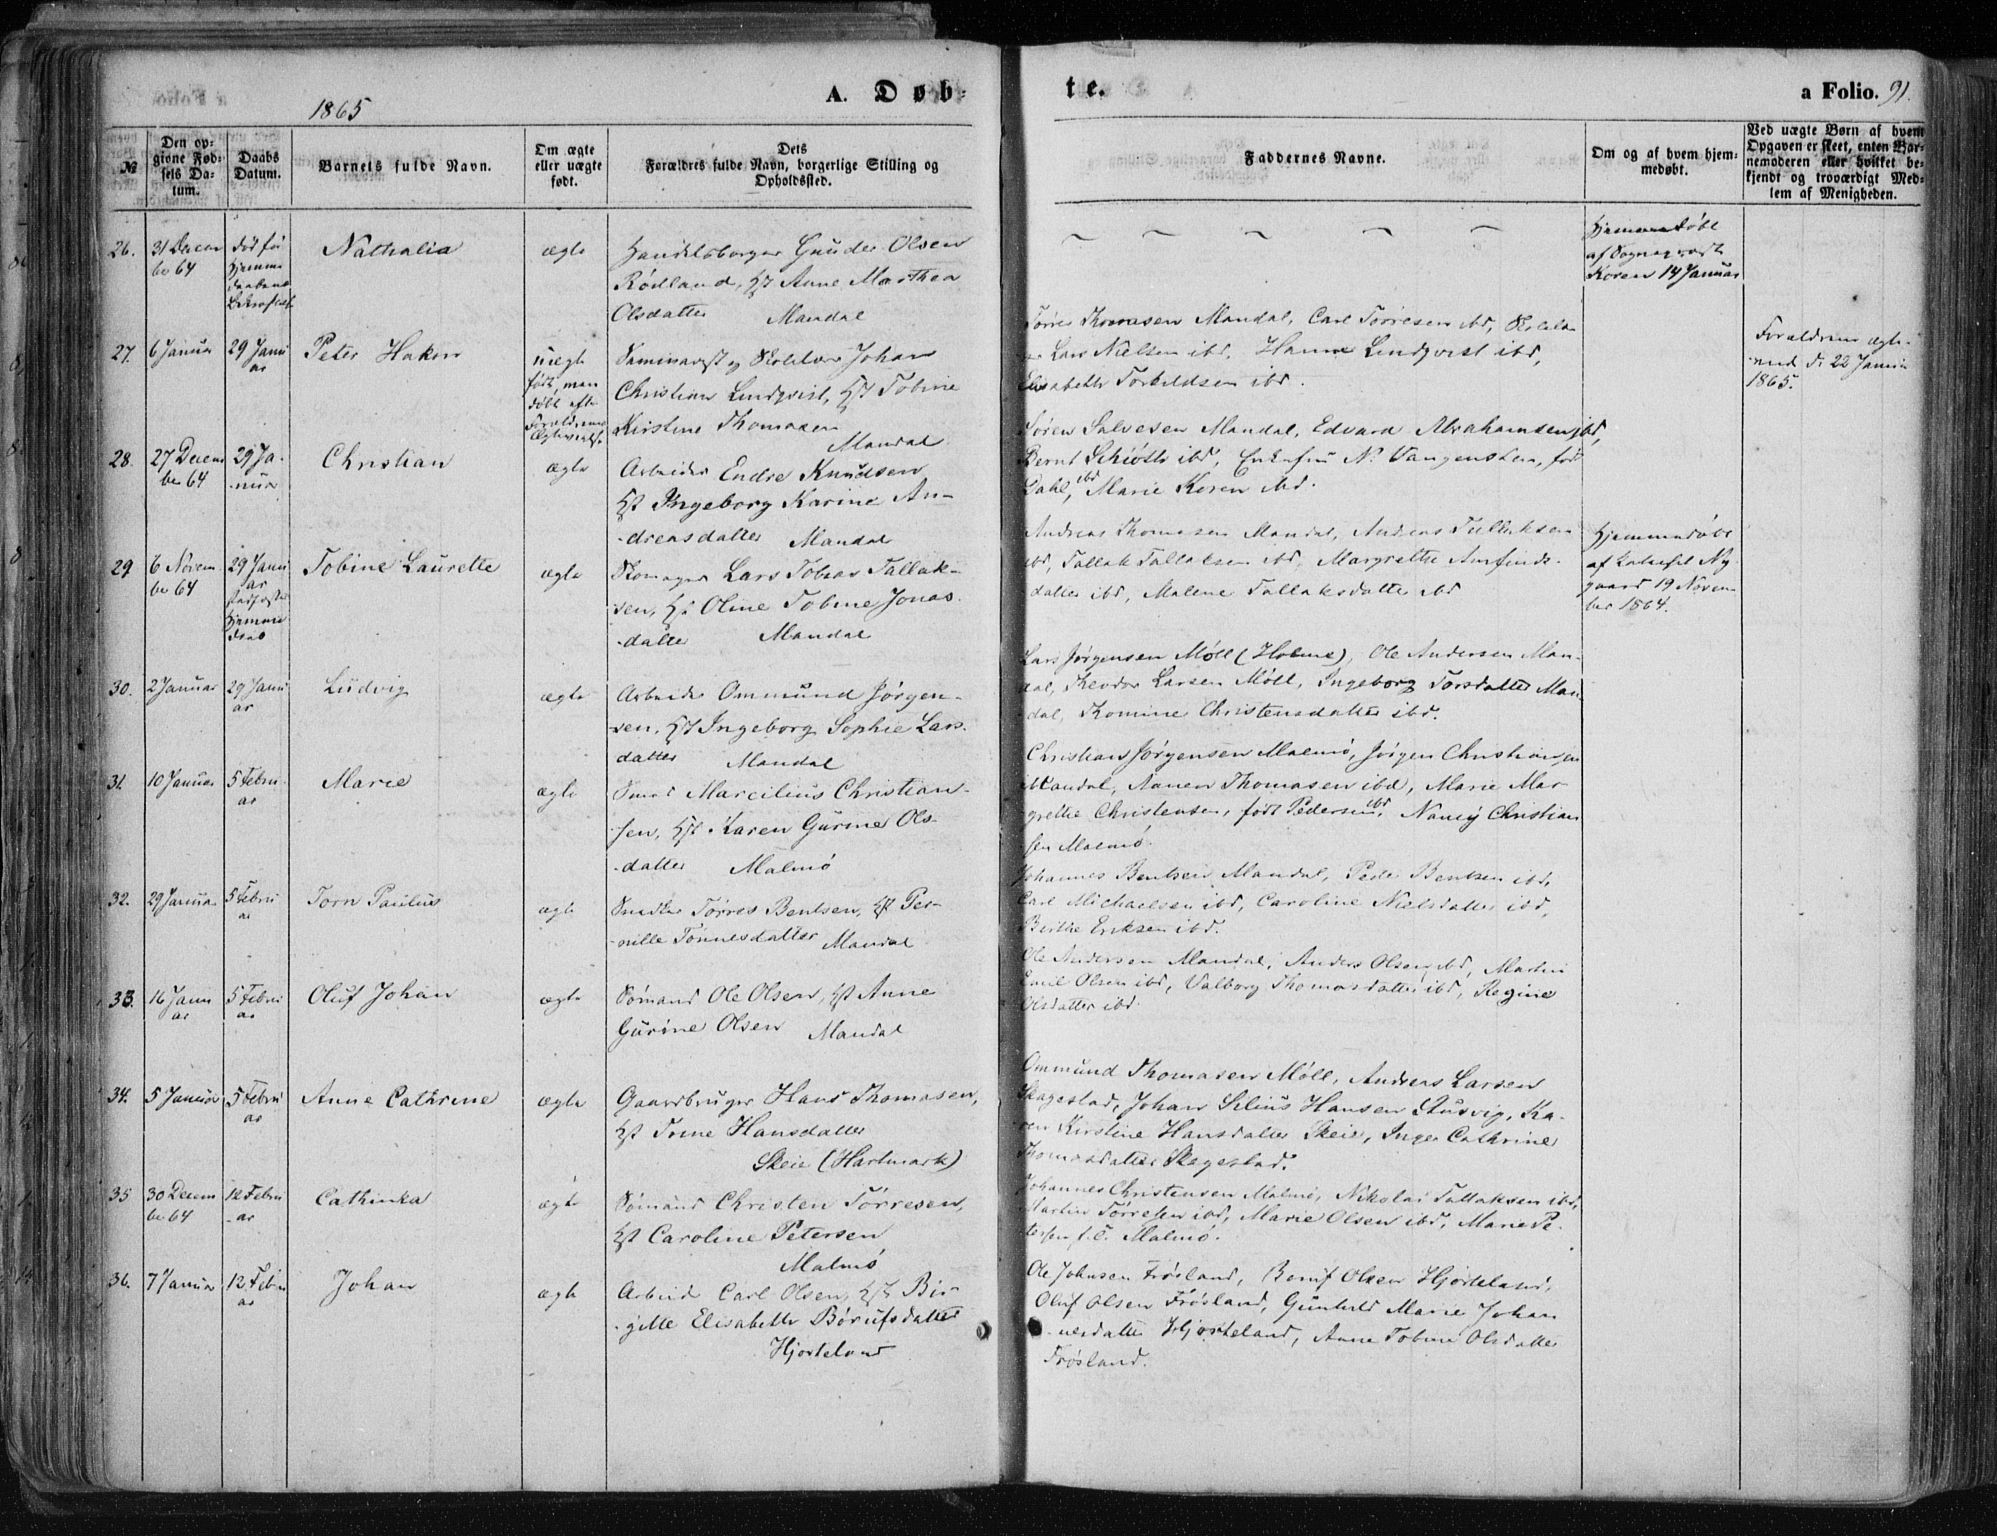 1865
A. Døb-
te.
a Folio. 91.
№
Den op-
givne Fød-
sels Da-
tum.
Daabs
Datum.
Barnets fulde Navn.
Om ægte
eller uægte
født.
Dets
Forældres fulde Navn, borgerlige Stilling og
Opholdssted.
Faddernes Navne.
Om og af hvem hjem-
medøbt.
Ved uægte Børn af hvem
Opgaven er skeet, enten Bar-
nemoderen eller hvilket be-
kjendt og troværdigt Med-
lem af Menigheden.
26.
31 Decem
be 64
død før
Hjemme
daabens
Nathalia
ægte
Handelsborger Gunder Olsen
Rødland, Hst Anne Marthea
Olsdatter Mandal
Hjemmedøbt
af Sognepræst
Koren 14 Januar
27.
6 Januar
29 Janu
ar
Peter Hakon
uægte
født, men
døbt efte
Forældrenes
Seminarist og Skolelærer Johan
Christian Lindqvist, Hst Tobine
Kirstine Thomasen
Mandal
Tørres Thomasen Mandal, Carl Torresen ibd, Skolelæ
rer Lars Nielsen ibd, Hanne Lindqvist ibd,
Elisabeth Torkildsen ibd.
Forældrene ægte-
viede d. 22 Januar
1865.
28.
27 Decem
be 64
29 Ja-
nuar
Christian
ægte
Arbeider Endre Knudsen
Hst Ingeborg Karine An-
-dreasdatter Mandal
Søren Salvesen Mandal, Edvard Abrahamsen ibd,
Bernt Schiøth ibd, Enkefru N. Vangensteen, født
Dahl, ibd Marie Koren ibd.
29
6 Novem
be 64
29 Janu
ar
Hjemme
daab
Tobine Laurette
ægte
Skomager Lars Tobias Tallak-
sen, Hst Oline Tobine Jonas-
-datter Mandal
Andreas Thomasen Mandal, Andreas Tallaksen
ibd, Tallak Tallaksen ibd, Margrethe Arnfinds-
datter ibd, Malene Tallaksdatter ibd
Hjemmedøbt
af Kateket Ny-
gaard 19 Novem-
ber 1864.
30.
2 Januar
29 Janu
ar
Ludvig
ægte
Arbeider Ommund Jørgen-
sen, Hst Ingeborg Sophie Lars-
datter Mandal
Lars Jørgensen Møll (Holme), Ole Andersen Man-
dal, Theodor Larsen Møll, Ingeborg Torsdatter Man-
dal, Romine Christensdatter ibd.
31.
10 Januar
5 Febru-
ar
Marie
ægte
Smed Marcilius Christian-
sen, Hst Karen Gurine Ols-
-datter Malmø
Christian Jørgensen Malmø, Jørgen Christiansen
Mandal, Aanen Thomasen ibd, Marie Mar-
grethe Christensen, født Pedersen ibd, Nancy Christian
sen Malmø.
32.
29 Januar
5 Febru
ar
Torn Paulus
ægte
Snedker Tørres Bentsen, Hst Per-
nille Tønnesdatter Mandal
Johannes Bentsen Mandal, Peder Bentsen ibd,
Carl Michaelsen ibd, Caroline Nielsdatter ibd,
Berthe Eriksen ibd.
33.
16 Janu
ar
5 Febru
ar
Oluf Johan
ægte
Sømand Ole Olsen, Hst Anne
Gurine Olsen Mandal
Ole Andersen Mandal, Anders Olsen ibd, Martin
Emil Olsen ibd, Valborg Thomasdatter ibd, Regine
Olsdatter ibd.
34.
5 Januar
5 Febru
ar
Anne Cathrine
ægte
Gaardbruger Hans Thomasen,
Hst Trine Hansdatter
Skeie (Hartmark)
Ommund Thomasen Møll, Andreas Larsen
Skagestad, Johan Silius Hansen Ausvig, Ka-
ren Kirstine Hansdatter Skeie, Inger Cathrine
Thomasdatter Skagestad.
35
30 Decem
be 64
12 Febru
-ar
Cathinka
ægte
Sømand Christen Tørresen,
Hst Caroline Petersen
Malmø
Johannes Christensen Malmø, Nikolai Tallaksen ibd,
Martin Tørresen ibd, Marie Olsen ibd, Marie Pe-
tersen f. C. Malmø.
36.
7 Januar
12 Febru
ar
Johan
ægte
Arbeid Carl Olsen, Hst Bir-
-gitte Elisabeth Børufsdatter
Hjorteland
Ole Johnsen Frøsland, Børuf Olsen Hjorteland,
Oluf Olsen Frøsland, Gunhild Marie Johan
-nesdatter Hjorteland, Anne Tobine Olsdatter
Frøsland.